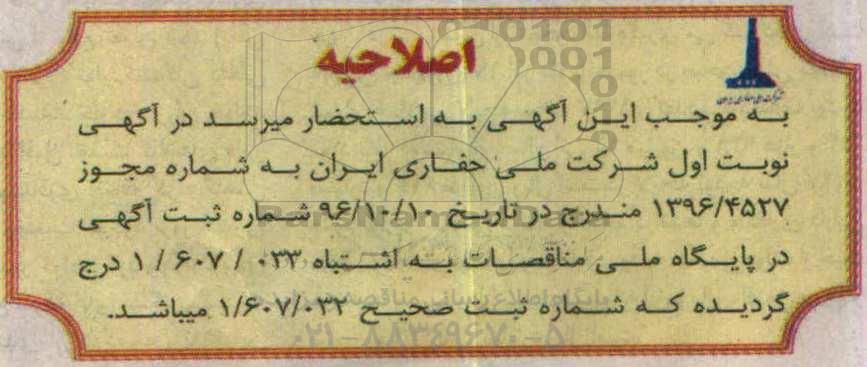 اصلاحیه
شرکت ملی حفاری ایران
به موجب این آگهی به استحضار میرسد در آگهی
نوبت اول شرکت ملی حفاری ایران به شماره مجوز
۱۳۹۶/۴۵۲۷ مندرج در تاریخ ۹۶/۱۰/۱۰ شماره ثبت آگهی
در پایگاه ملی مناقصات به اشتباه ۰۳۳ / ۶۰۷ / ۱ درج
گردیده که شماره ثبت صحیح ۱/۶۰۷/۰۳۲ میباشد.
ParsNamadData
۰۲۱-۸۸۳۴۹۶۷۰-۵